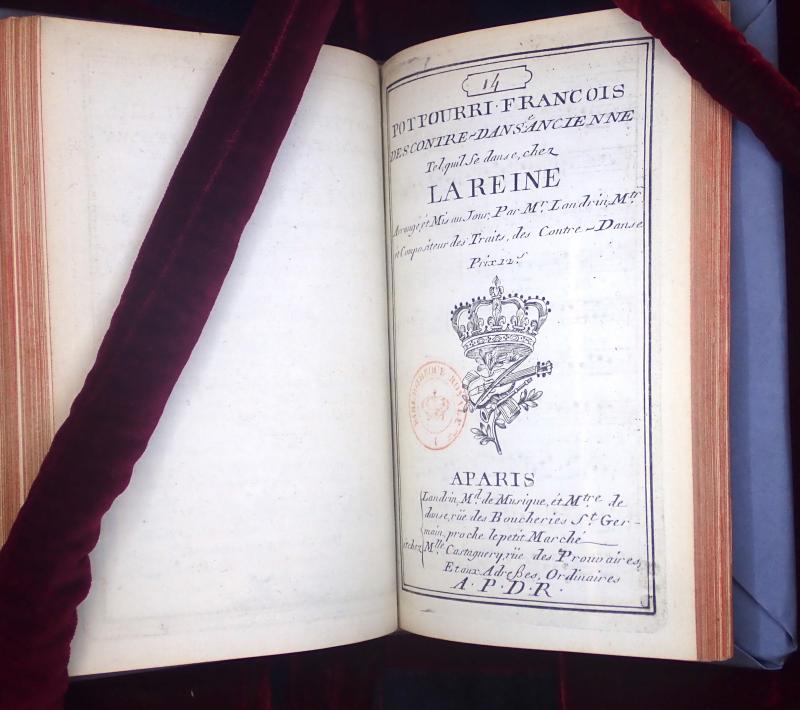 14
POTPOURRI·FRANCOIS
DES CONTRE-DANSE ANCIENNE
Tel quil Se danse, chez
LA REINE
Arrangé, et Mis au Jour, Par Mr. Landrin, Mtr
et Compositeur des Traits, des Contre-Danse
Prix 12 s
BIBLIOTHEQUE ROYALE
A PARIS
Landrin, Md. de Musique, ét Mtre de
danse, rüe des Boucheries St. Ger-
main, proche le petit Marché
et chez Mlle Castagnery, rüe des Prouvaires,
Et aux Adreßes, Ordinaires
A·P·D·R·